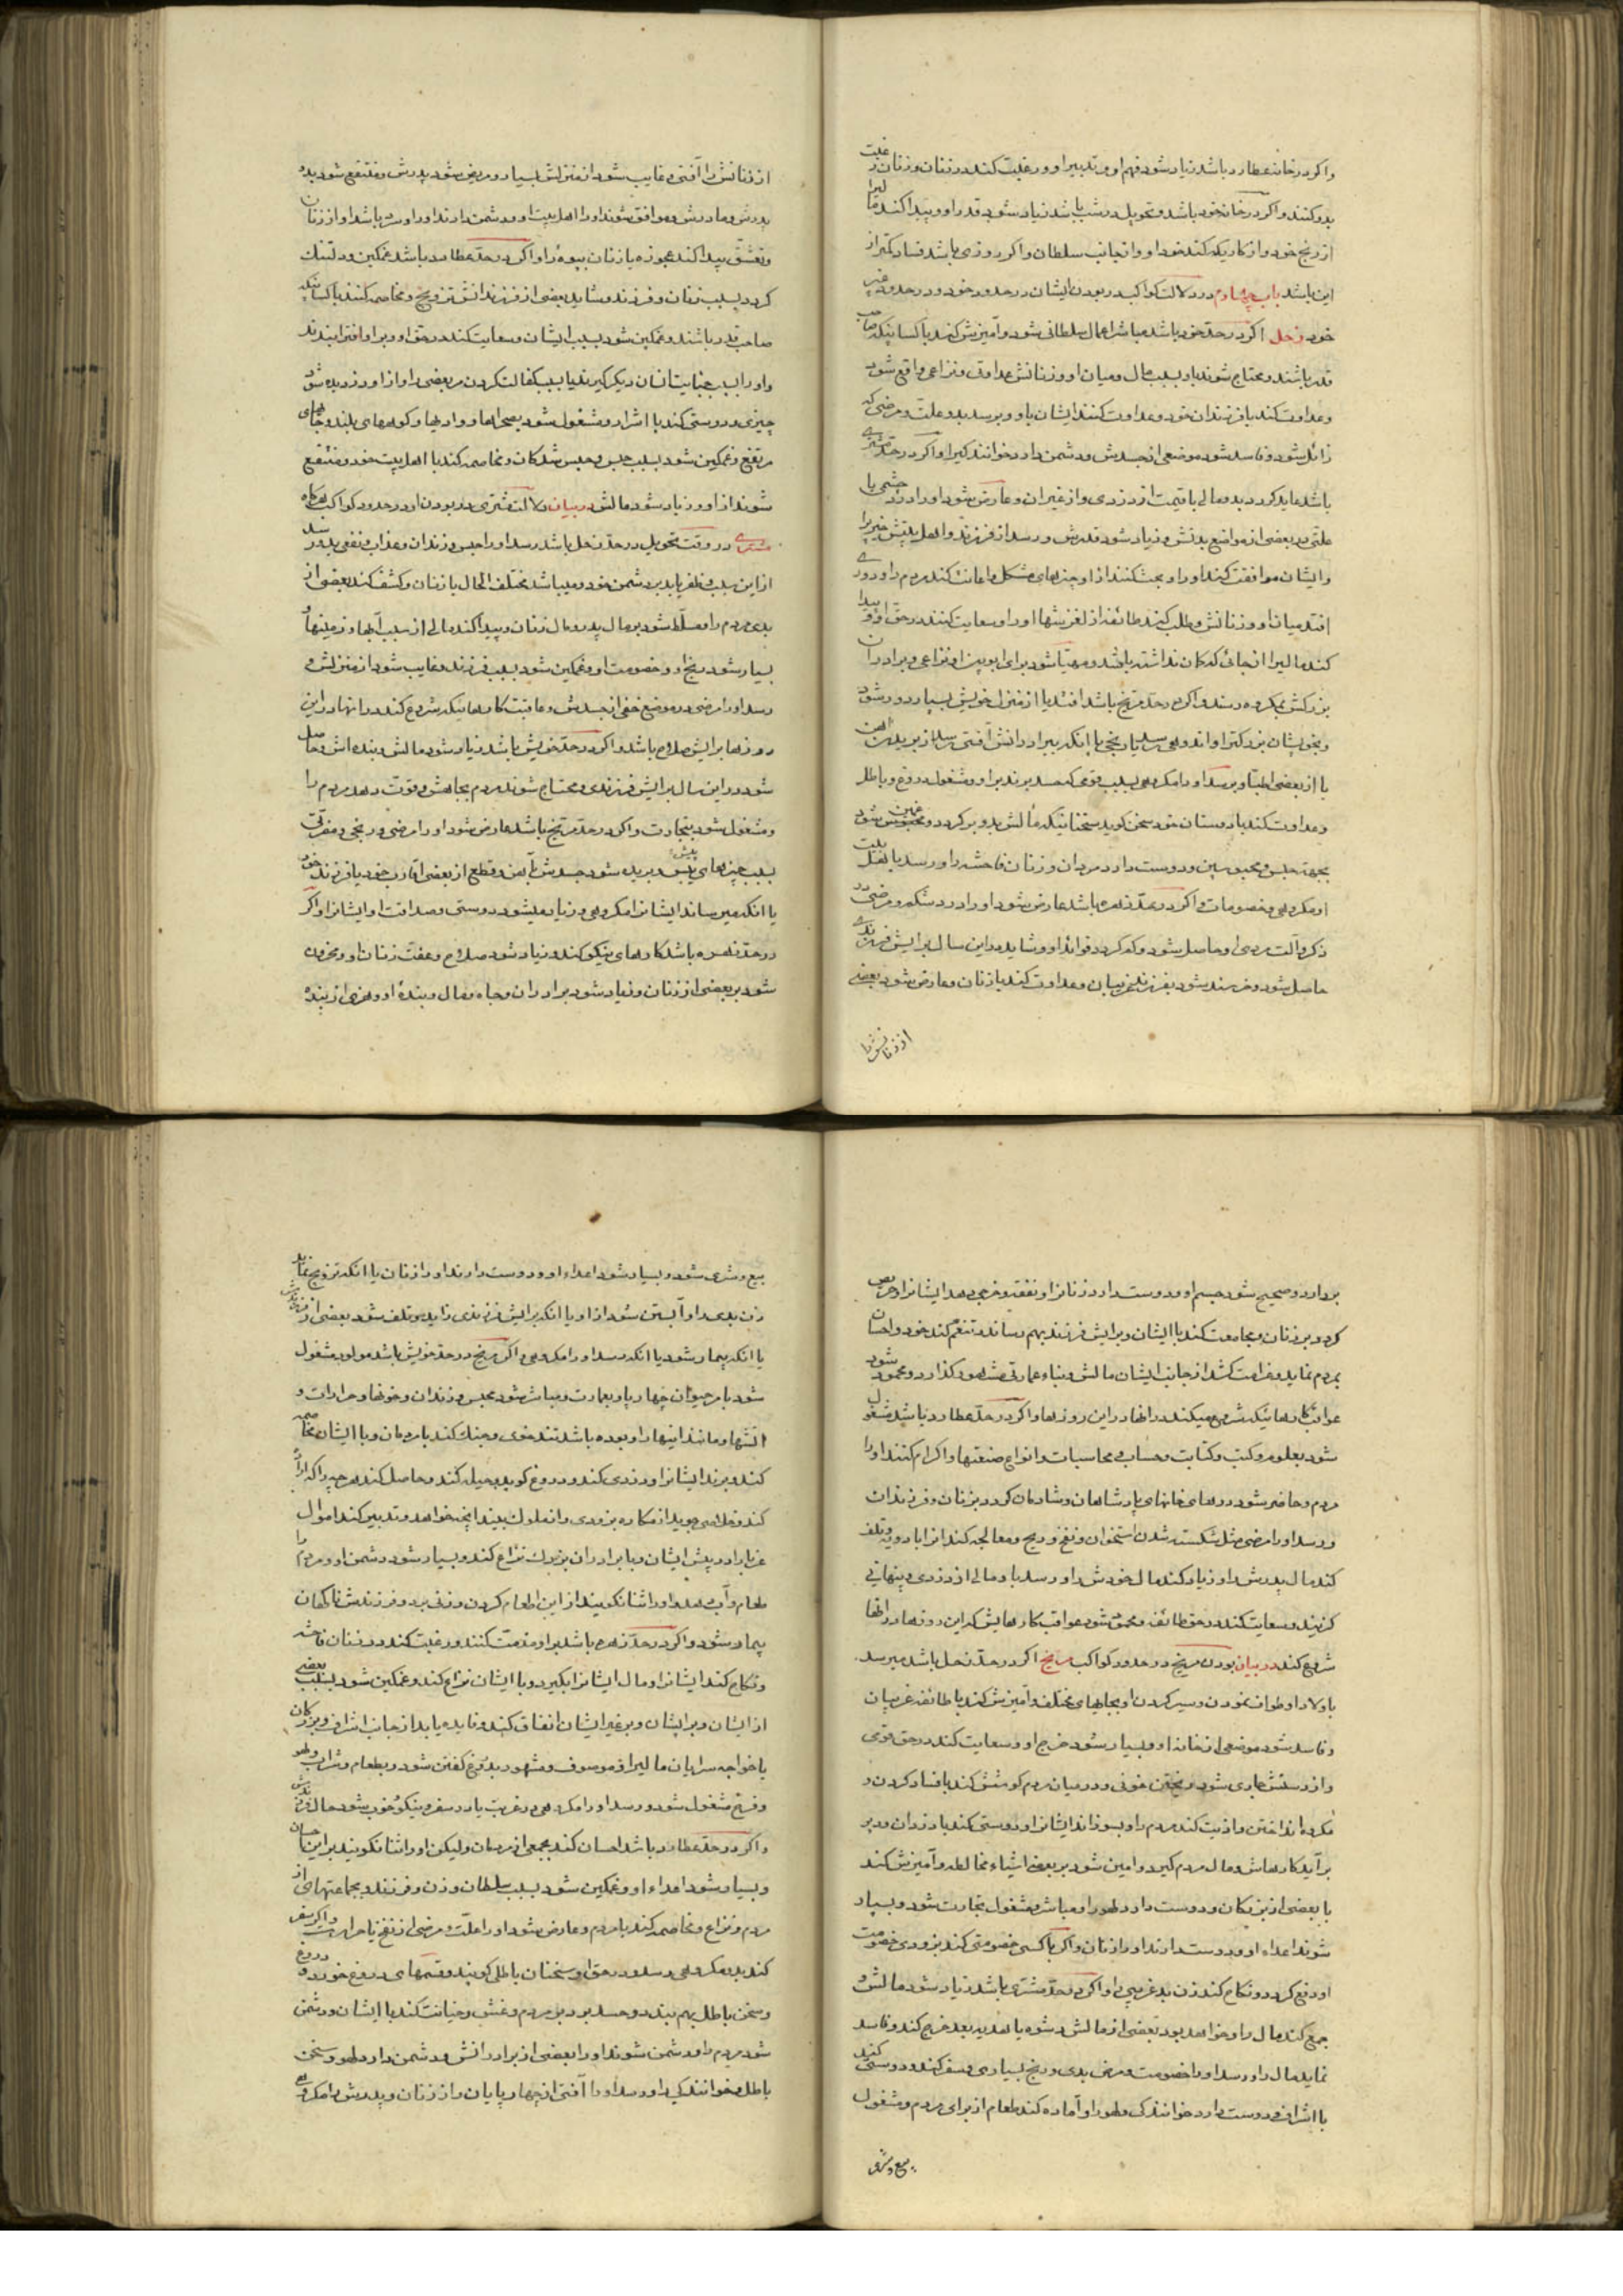 واکر در خانه عطارد باشد زیاد شود فهم او و تدبیر او و رغبت کند در زنان و زنان رغبت
بدو کنند و اکر در خانه خود باشد و تحویل در شب باشد زیاد شود قدر او و پیدا کند مالیرا
از رنج خود و از کاریکه کند خود او و از جانب سلطان و اکر روزی باشد فساد کمتر از
این باشد باب چهارم در دلالت کواکب در بودن ایشان در حدود خود و در حدود غیر
خود زحل اکر در حد خود باشد مباشر اعمال سلطانی شود و آمیزش کند با کسانیکه صاحب
قدر باشند و محتاج شوند باو بسبب مال و میان او و زنانش عداوت و نزاعی واقع شود
و عداوت کند با فرزندان خود و عداوت کنند ایشان باو و برسد بدو علت و مرضی که
زائل شود و فاسد شود موضعی از جسدش و دشمن دارد خوانندکیرا و اکر در حد مشتری
باشد عاید کردد بدو مالی با قیمت از دزدی و از غیر آن و عارض شود او را درد چشمی یا
علتی در بعضی از مواضع بدنش و زیاد شود قدرش و رسد از فرزند و اهل بیتش خیر را
و ایشان موافقت کنند او را و بحث کنند از او چیزهای مشکل و اعانت کند مردم را و دوری
افتد میان او و زنانش و طلب کنند طائفه از لغزیشها او را و سعایت کنند در حق او و پیدا
کند مالیرا از جائی که کمان نداشته باشد و مهیا شود برای ابوین او نزاعی و برادران
بزرکش بمکروه رسند و اکر در حد مریخ باشد افتد یا از منزل خویش بسیار دور شود
یا از بعضی اطبا و برسد او را مکروهی بسبب قومی که حسد برند بر او و مشغول دروغ و باطل
و عداوت کند با دوستان خود سخن کوید بسخنانیکه مالش بدو بر کردد و غمکین شود
بجهة حبس و محبوسین و دوست دارد مردان و زنان فاحشه را و رسد باهل بیت
او مکروهی و خصومات و اکر در حد زهره باشد عارض شود او را درد شکم و مرضی در
ذکر و آلت مردی او حاصل شود و کم کردد فواید او و شاید در این سال برایش فرزندی
حاصل شود و خرسند شود بفرزند غریبان و عداوت کند با زنان و عارض شود بعضی
از زنانش را
از زنانش را آفتی و غایب شود از منزلش بسیار و مریض شود پدرش و منتفع شود بدو
پدرش و مادرش و موافق شوند او را اهل بیت او و دشمن دارند او را و سرد باشد او از زنان
و تعشق پیدا کند بعجوزه یا زنان بیوهٔ را و اکر در حد عطارد باشد غمکین و دلتنک
کردد بسبب زنان و فرزند و شاید بعضی از فرزندانش تزویج و مخاصمه کنند با کسانیکه
صاحب قدر باشند و غمکین شود بسبب ایشان و سعایت کنند در حق او و بر او افترا بندند
و او را بسبب جنایت انسان دیکر کیرند یا بسبب کفالت کردن مر بعضی را و از او دزدیده شود
چیزی و دوستی کند با اشرار و مشغول شود بصحراها و وادیها و کوههای بلند و جاهای
مرتفع و غمکین شود بسبب حبس و حبس شدکان و مخاصمه کند با اهل بیت خود و منتفع
شوند از او و زیاد شود مالش در بیان دلالت مشتری در بودن او در حدود کواکب هرکاه
مشتری در وقت تحویل در حد زحل باشد رسد او را حبس و زندان و عذاب و نفعی بدو رسد
از این سبب و ظفر یابد بر دشمن خود و میباشد مختلف الحال با زنان و کشف کند بعضی از
بدی مردم را و مسلط شود بر مال پدر و مال زنان و پیدا کند مالی از سبب آبها و زمینها و
بسیار شود رنج او و خصومت او و غمکین شود بسبب فرزند و غایب شود از منزلش و
رسد او را مرضی در موضع خفی از جسدش و عاقبت کارهائیکه شروع کند در آنها در این
روزها برایش صلاح باشد و اکر در حد خویش باشد زیاد شود مالش و بنده اش و حاصل
شود در این سال برایش فرزندی و محتاج شوند مردم بجاهش و قوت دهد مردم را
و مشغول شود بتجارت و اکر در حد مریخ باشد عارض شود او را مرضی و رنجی و مفرقی
بسبب چیزهای یابس و بریده شود جسدش بآهن و قطع از بعضی اقارب خود یا فرزند خود
یا انکه میرساند ایشانرا مکروهی و زیاد میشود دوستی و صداقت او ایشانرا و اکر
در حد زهره باشد کارهای نیکو کند و زیاد شود صلاح و عفت زنان او و محزون
شود بر بعضی از زنان و زیاد شود برادران و جاه و مال و بندهٔ او و مرضی از بنده
بردارد و صحیح شود جسم او و دوست دارد زنانرا و نفقه و خرجی دهد ایشانرا و حریص
کردد بر زنان و مجامعت کند با ایشان و برایش فرزند بهم رساند و تنعم کند خود و احسان
بمردم نماید و غرامت کشد از جانب ایشان مالش و بناء عمارتی مشهور کذارد و محمود شود
عواقب کارهائیکه شروع میکند در آنها در این روزها و اکر در حد عطارد باشد مشغول
شود بعلوم و کتب و کتابت و حساب و محاسبات و انواع صنعتها و اکرام کنند او را
مردم و حاضر شود در درهای خانهای پادشاهان و شادمان کردد بزنان و فرزندان
و رسد او را مرضی مثل شکسته شدن استخوان و نفخ و ریح و معالجه کند آنرا بادویه و تلف
کند مال پدرش را و زیاد کند مال خودش را و رسد باو مالی از دزدی و پنهانی
کزیند و سعایت کند در حق طائفه و محمود شود عواقب کارهایش که این روزها در آنها
شروع کند در بیان بودن مریخ در حدود کواکب مریخ اکر در حد زحل باشد میرسد
باولاد او طواف نمودن و سیر کردن او بجاهای مختلف و آمیزش کند با طائفه غریبان
و فاسد شود موضعی از خانه او و بسیار شود خرج او و سعایت کند در حق قومی
و از دستش جاری شود ریختن خونی و در میان مردم کوشش کند بافساد کردن و
مکروه انداختن و اذیت کند مردم را و بسوزاند ایشانرا و دوستی کند با دزدان و دیر
برآید کارهاش و مال مردم کیرد و امین شود بر بعضی اشیاء مخالطه و آمیزش کند
با بعضی از بزرکان و دوست دارد لهو را و مباشر و مشغول تجارت شود و بسیار
شوند اعداء او و دوست دارند او را زنان و اکر با کسی خصومتی کند بزودی خصومت
او دفع کردد و نکاح کند زن بد غریبی را و اکر در حد مشتری باشد زیاد شود مالش و
جمع کند مال را و خواهد بود بعضی از مالش رشوه یا هدیه بعد خرج کند و فاسد
نماید مال را و رسد او را خصومت و مرض بدی و رنج بسیاری و سفر کند و دوستی کند
با اشراف و دوست دارد خوانندکی و لهو را و آماده کند طعام از برای مردم و مشغول
بیع و شری
بیع و شری شود و بسیار شود اعداء او و دوست دارند او را زنان یا انکه تزویج نماید
زن بدی را و آبستن شود از او یا انکه برایش فرزندی زاید و تلف شود بعضی از فرزندش
یا انکه بیمار شود یا انکه رسد او را مکروهی و اکر مریخ در حد خویش باشد مولود مشغول
شود بامر حیوان چهارپا و بعمارت و مباشر شود حبس و زندان و خونها و جراحات و
آتشها و مانند اینها را و بوده باشد تندخوی و جنک کند با مردمان و با ایشان مخاصمه
کند و برند ایشانرا و دزدی کند و دروغ کوید و حیله کند و حاصل کند هرچه را که اراده
کند و خلاصی جوید از مکاره بزودی و از ملوک بیند آنچه خواهد و تدبیر کند اموال
غربا را در پیش ایشان و با برادران بزرک نزاع کند و بسیار شود دشمن او و مردم را
طعام و آب دهد و او را ثنا نکویند از این اطعام کردن و زنی برد و فرزندش ناکهان
بیمار شود و اکر در حد زهره باشد بر او مذمت کنند و رغبت کند در زنان فاحشه
و نکاح کند ایشانرا و مال ایشانرا بکیرد و با ایشان نزاع کند و غمکین شود بسبب بعضی
از ایشان و بر ایشان و بر غیر ایشان انفاق کند و فایده یابد از جانب اشراف و بزرکان
یا خواجه سرایان مالیرا و موصوف و مشهور بدروغ گفتن شود و بطعام و شراب و لهو
و فرح مشغول شود و رسد او را مکروهی در غربت یا در سفر و نیکو و خوب شود حال فرزندش
و اکر در حد عطارد باشد احسان کند بجمعی از مردمان و لیکن او را ثنا نکویند بر این احسان
و بسیار شود اعداء او و غمکین شود بسبب سلطان و زن و فرزند و بجماعتهای از
مردم و نزاع و مخاصمه کند با مردم و عارض شود او را علت و مرضی از نفخ یا حرارت و اکر سفر
کند بدو مکروهی رسد و در حق او سخنان باطلی کویند و قسمهای دروغ خورد و دروغ
و سخن باطل بهم بندد و حسد برد بر مردم و غش و خیانت کند با ایشان و دشمن
شود مردم را و دشمن شوند او را بعضی از برادرانش و دشمن دارد لهو و سخن
باطل و خوانندکی را و رسد او را آفتی از چهارپایان و از زنان و پدرش را مکروهی